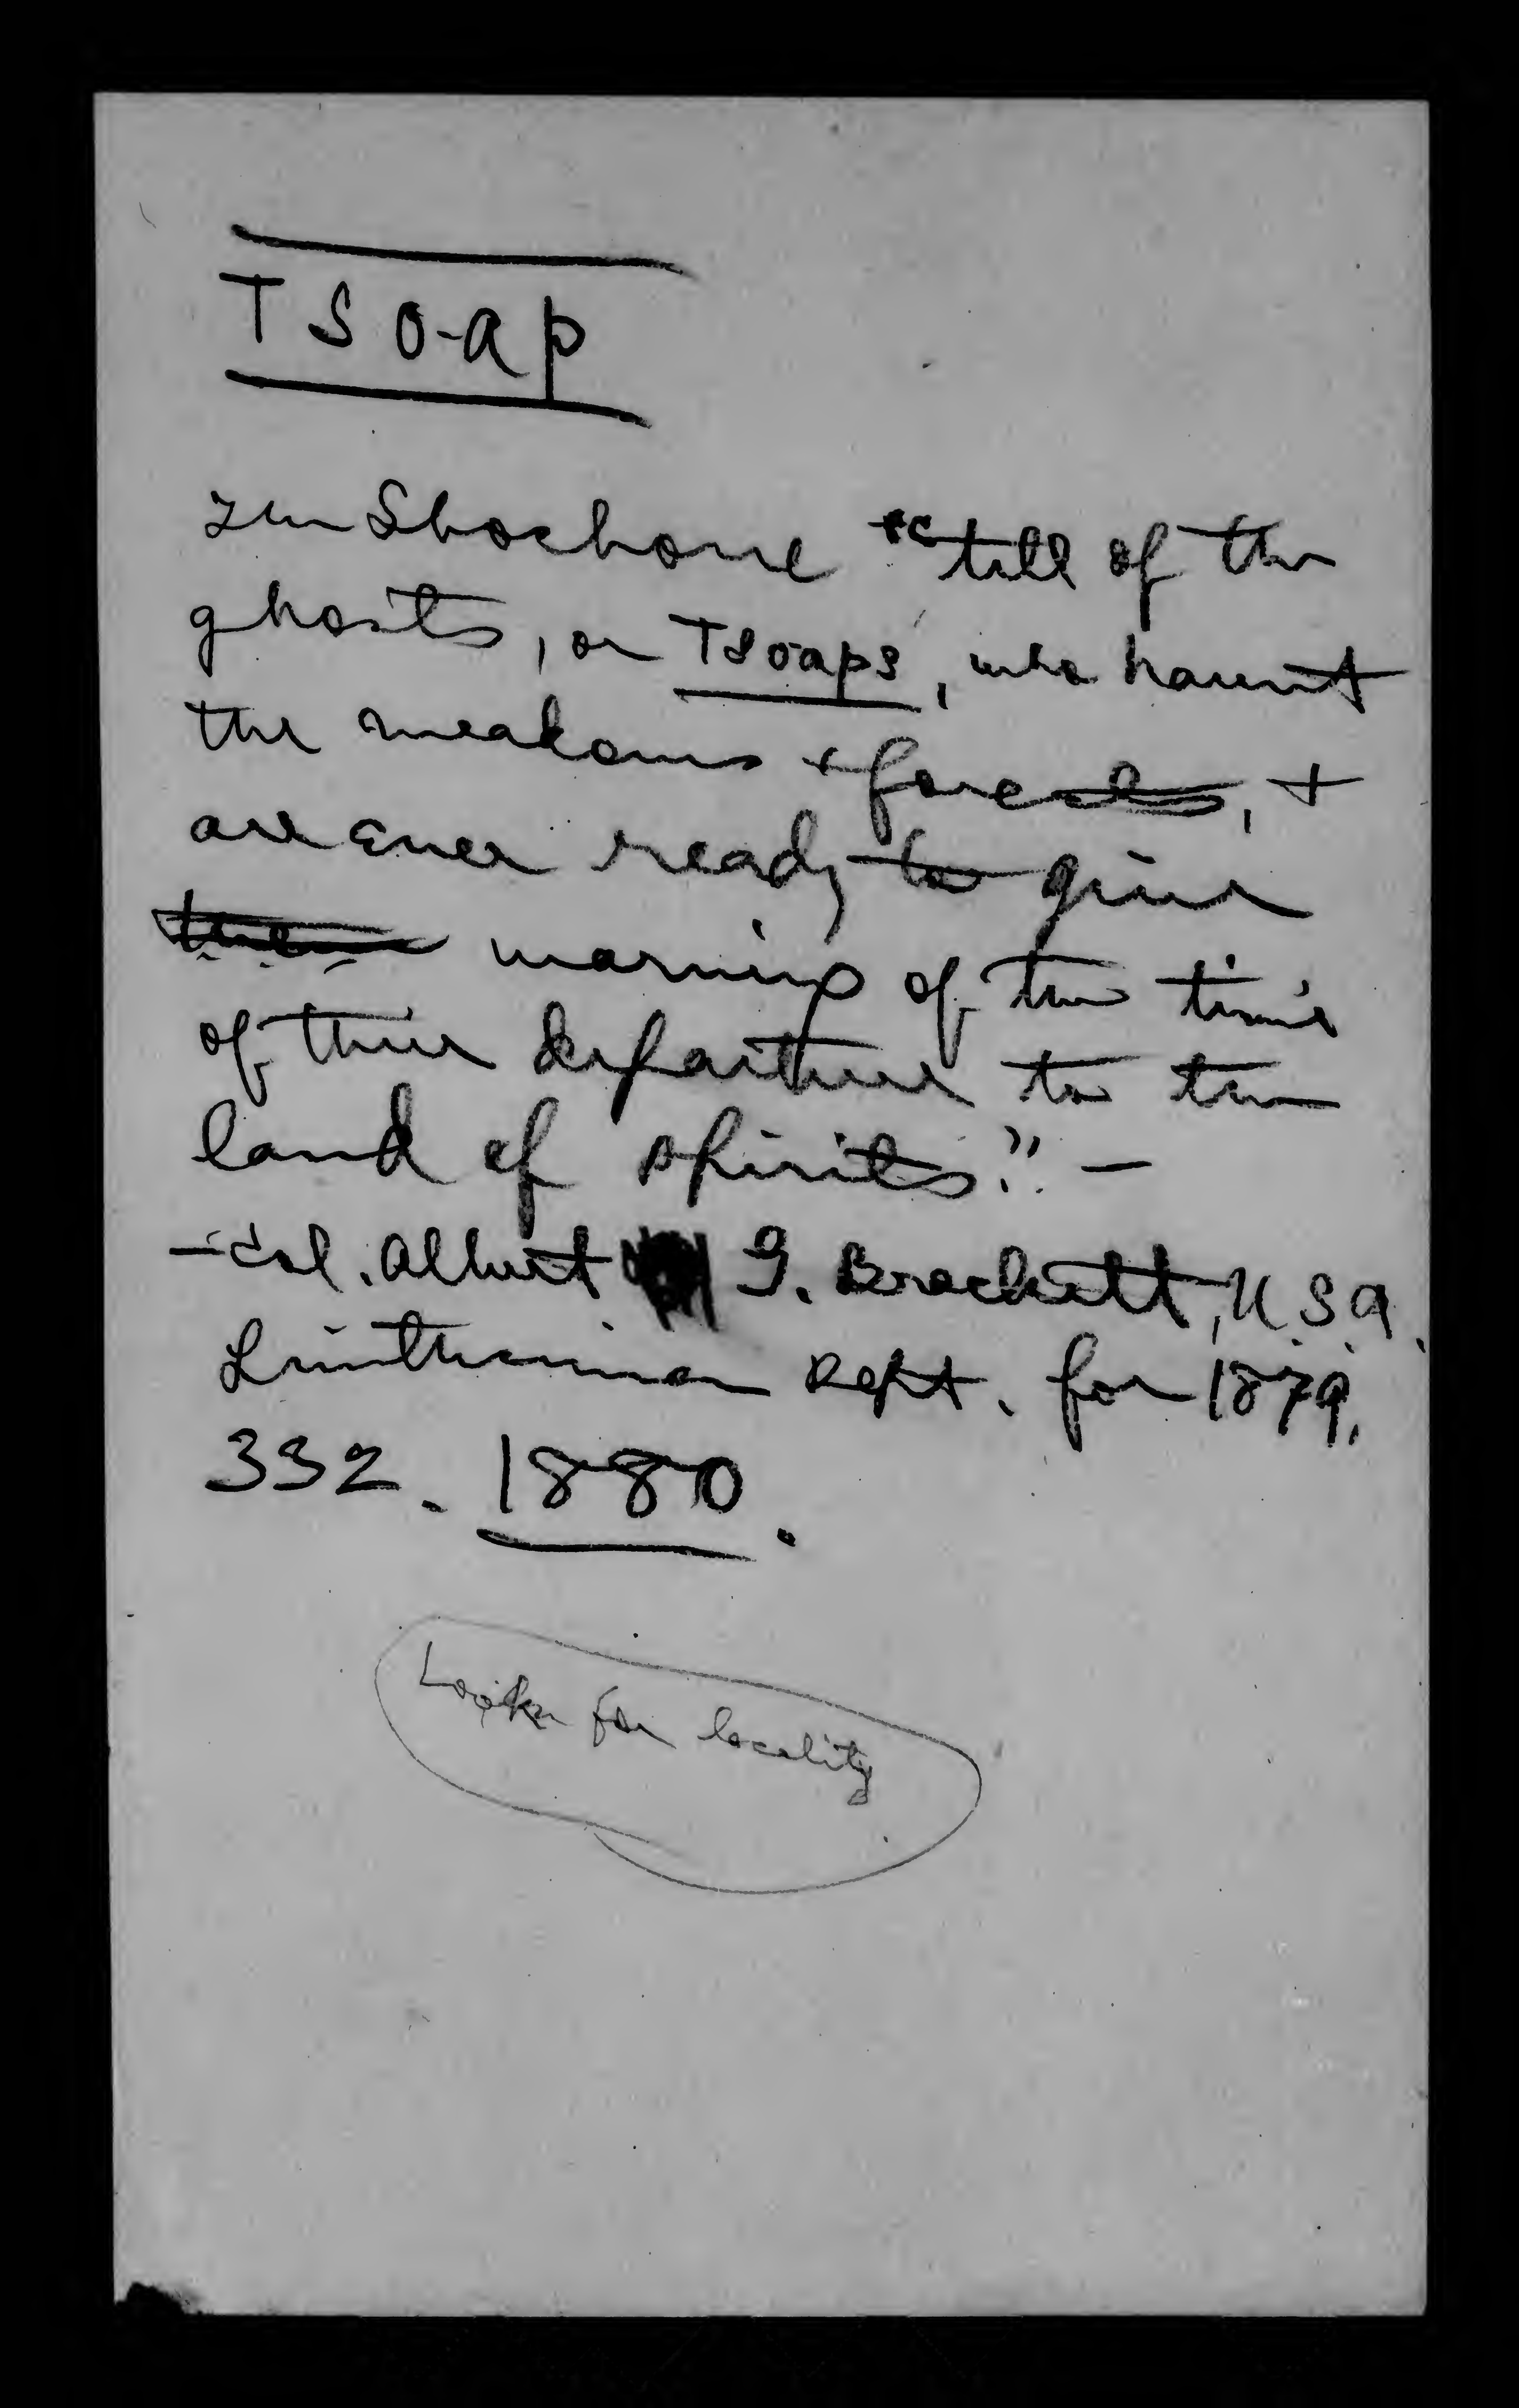 TSO-ap
The Shoshone "tell of the
ghosts, or Tsoaps, who haunt
the meadows + forests, +
are ever ready to give
them warning of the time
of their departure to the
land of spirits." —
— Col. Albert G. Brackett, U.S.A.
Smithsonian Rept. for 1879,
332. 1880.
Look for locality